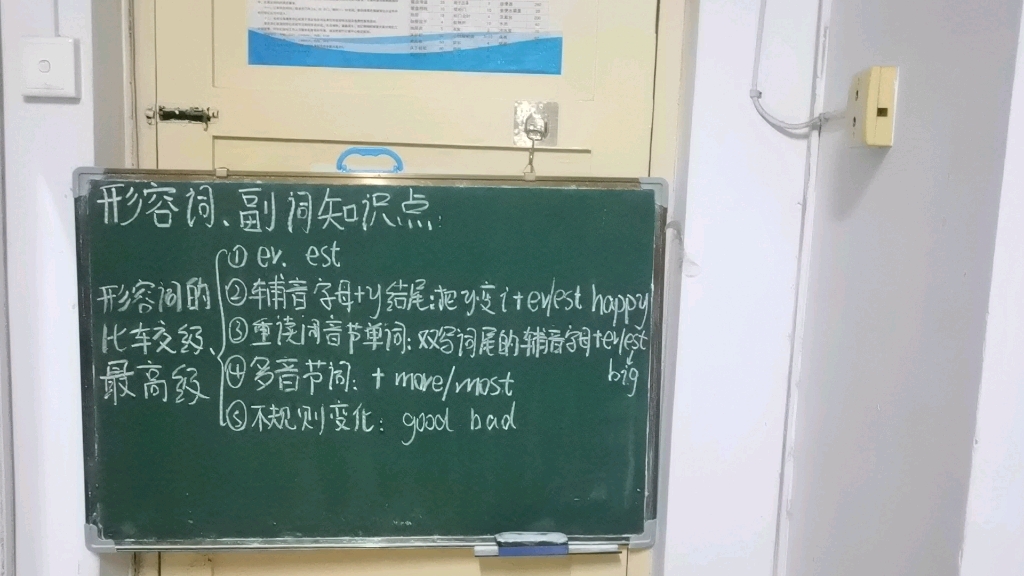 形容词、副词知识点:
形容词的
比较级、
最高级
① er. est
② 辅音字母+y结尾:把y变i+er/est happy
③ 重读闭音节单词:双写词尾的辅音字母+er/est
big
④ 多音节词: + more/most
⑤ 不规则变化: good bad